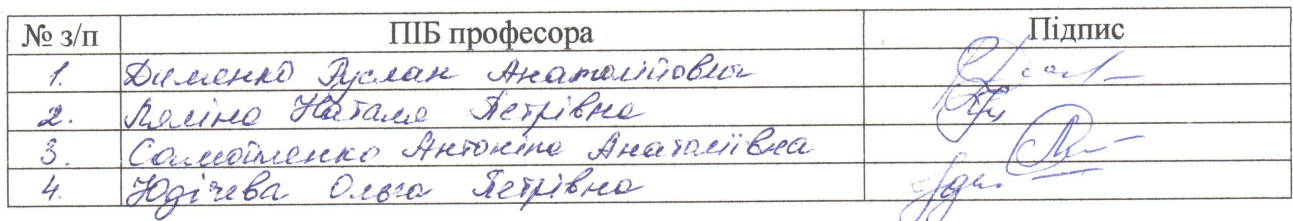 № з/п ПІБ професора Підпис
1. Дименко Руслан Анатолійович
2. Наталя Петрівна
3. Самойленко Антоніна Анатоліївна
4. Юдічева Ольга Петрівна